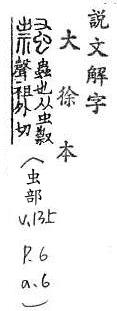 說文解字
大徐本
蟲也从虫
聲祖外切
(虫部
V.135
P.6
a.6)